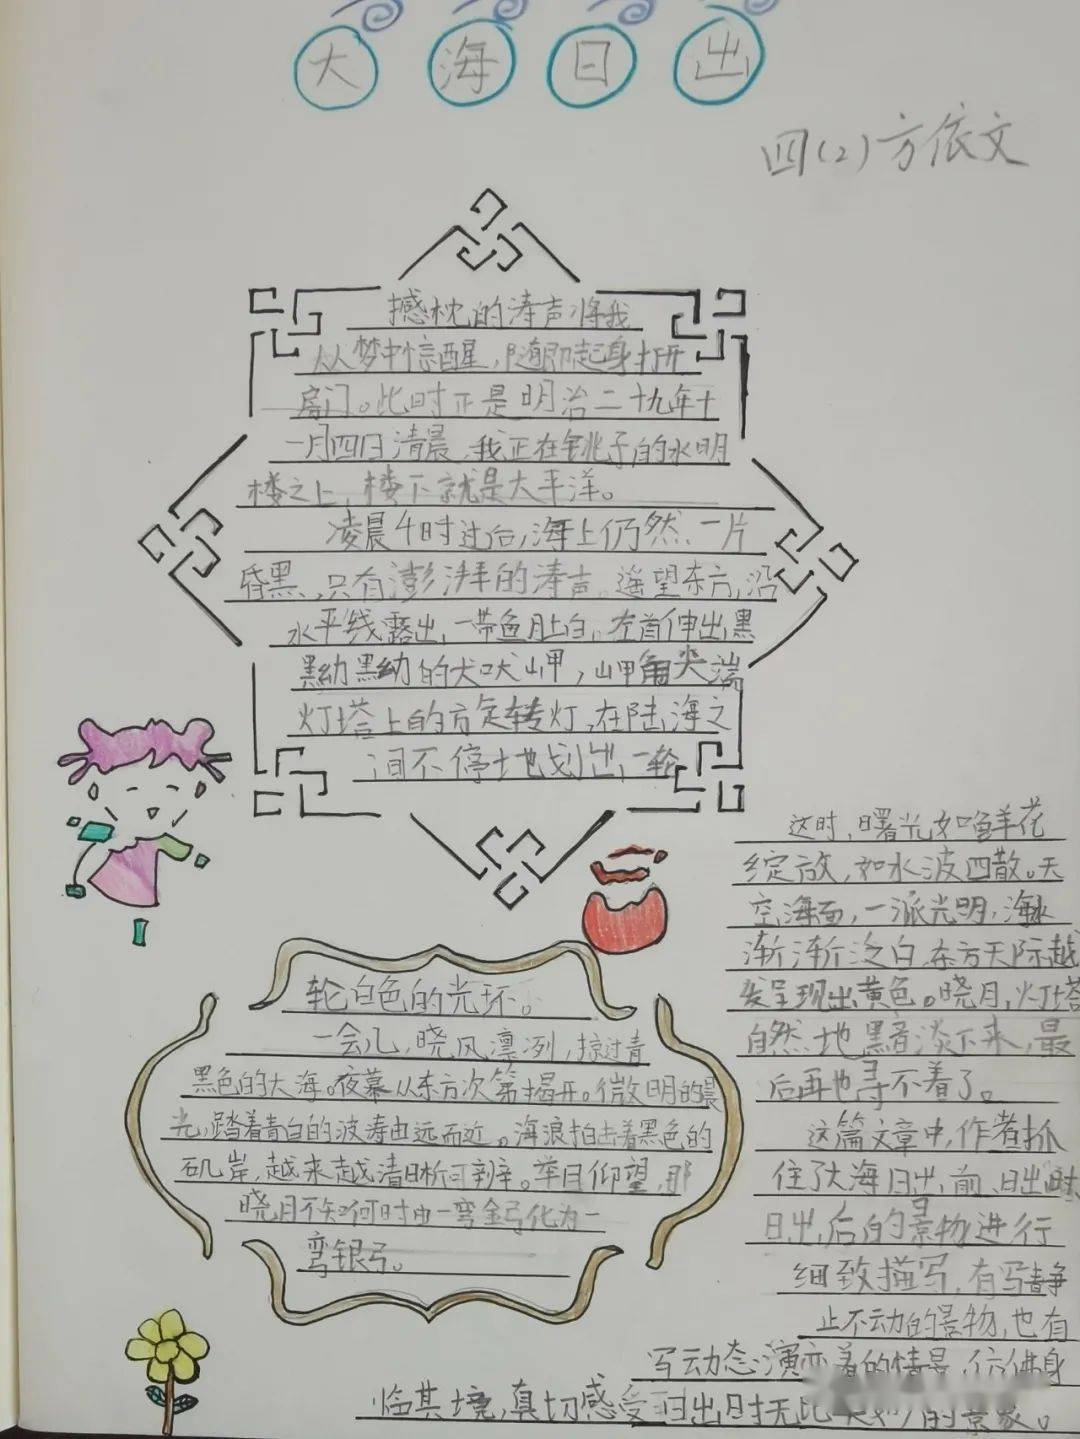 大海日出
四(2)方依文
撼枕的涛声将我
从梦中惊醒，随即起身打开
房门。此时正是明治二十九年十
一月四日清晨，我正在铫子的水明
楼之上，楼下就是太平洋。
凌晨4时过后，海上仍然一片
昏黑，只有澎湃的涛声。遥望东方，沿
水平线露出一带鱼肚白。左首伸出黑
黝黝的犬吠岬，岬角尖端
灯塔上的方定转灯，在陆海之
间不停地划出一轮
轮白色的光环。
一会儿，晓风凛冽，掠过青
黑色的大海。夜幕从东方次第揭开。微明的晨
光，踏着青白的波涛由远而近。海浪拍击着黑色的
矶岸，越来越清晰可辨。举目仰望，那
晓月不知何时由一弯金弓化为一
弯银弓。
这时，曙光如鲜花
绽放，如水波四散。天
空，海面，一派光明，海水
渐渐泛白，东方天际越
发呈现出黄色。晓月，灯塔
自然地黯淡下来，最
后再也寻不着了。
这篇文章中，作者抓
住了大海日出前、日出时、
日出后的景物进行
细致描写，有写静
止不动的景物，也有
写动态演变着的情景，仿佛身
临其境，真切感受到日出时无比的景象。